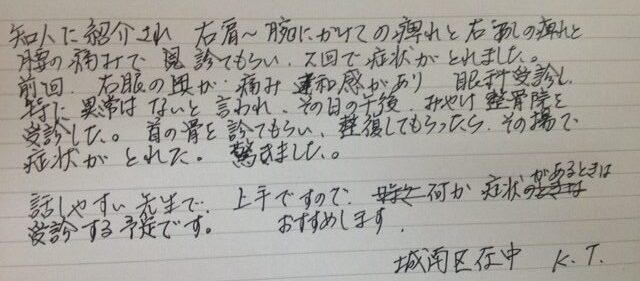 知人に紹介され 右肩〜腕にかけての痺れと右あしの痺れと
腰の痛みで 見診てもらい、2回で症状がとれました。
前回、右眼の奥が 痛み 違和感があり 眼科受診し、
特に異常はないと言われ、その日の午後、みやけ整骨院を
受診した。首の骨を診てもらい、整復してもらったら、その場で
症状がとれた。驚きました。
話しやすい先生で、上手ですので、何か症状があるときは
受診する予定です。 おすすめします。
城南区在中 K.T.